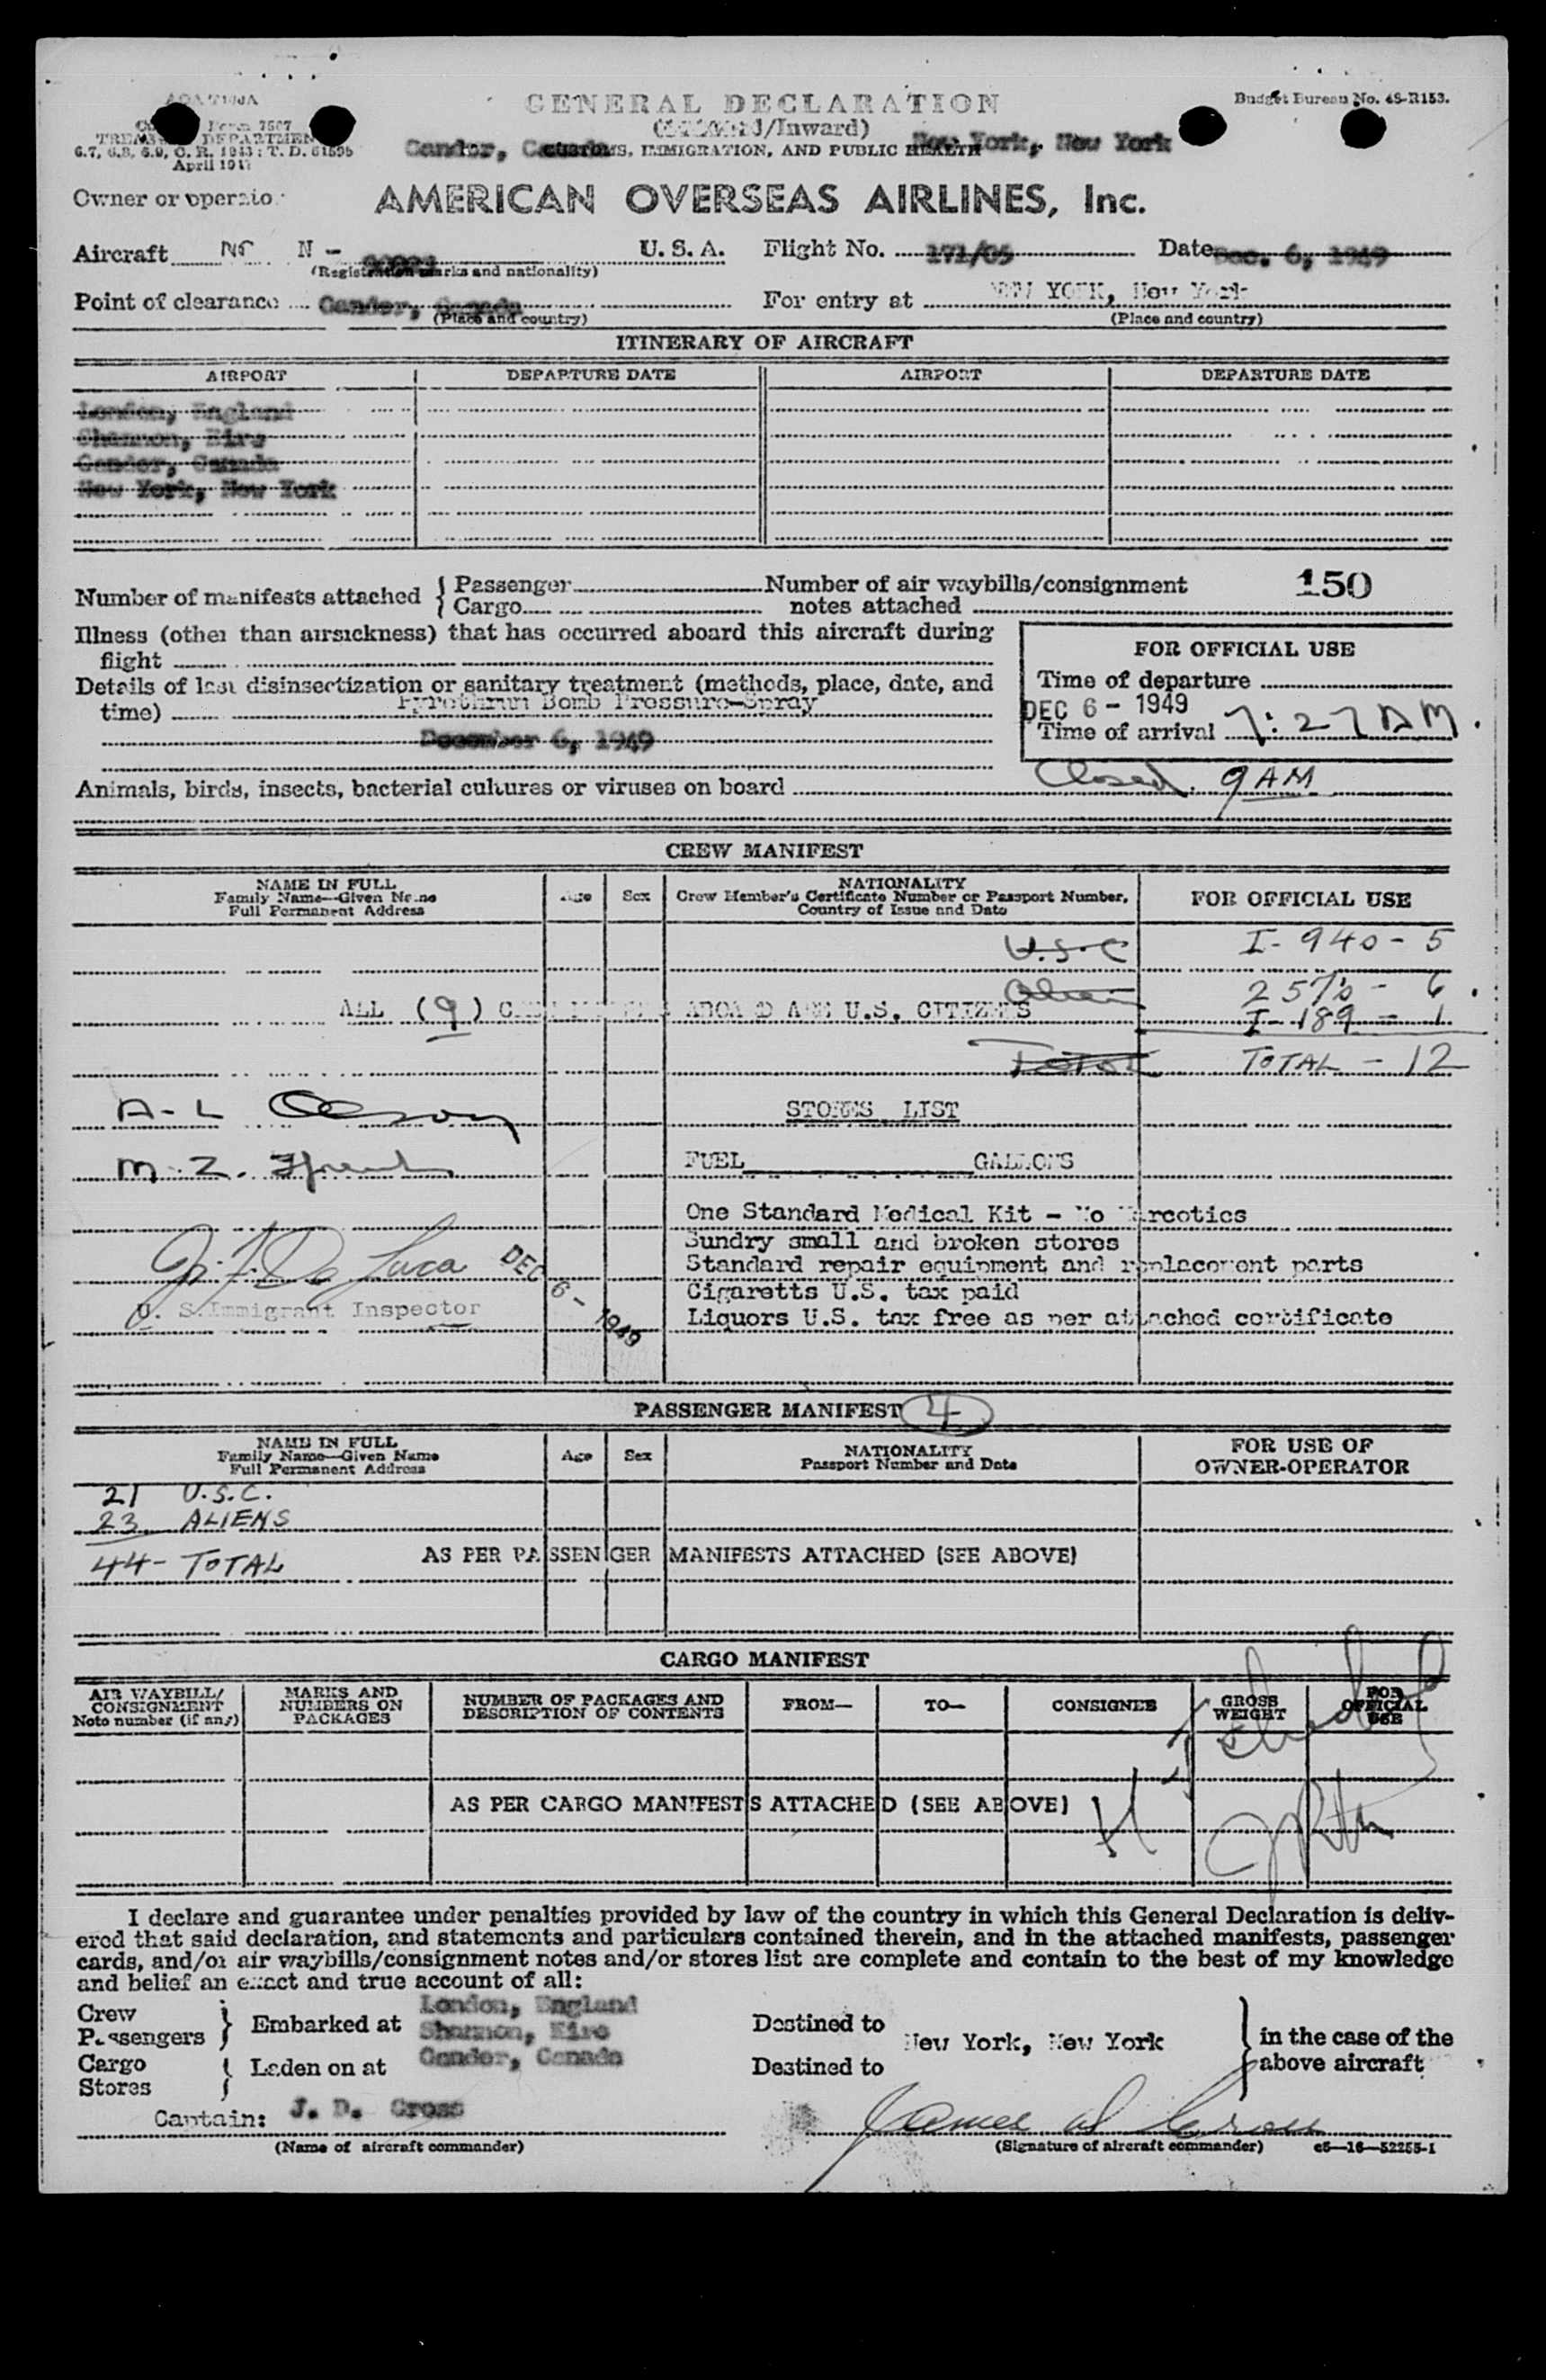 GENERAL DECLARATION
Budget Bureau No. 48-R153.
Form 7507
(Inward)
TREASURY DEPARTMENT
CUSTOMS, IMMIGRATION, AND PUBLIC HEALTH
Gander, Canada New York, New York
April 194
Owner or operator AMERICAN OVERSEAS AIRLINES, Inc.
Aircraft NC N - U. S. A. Flight No. 171/05 Date Dec. 6, 1949
(Registration marks and nationality)
Point of clearance Gander, Canada For entry at NEW YORK, New York
(Place and country) (Place and country)
ITINERARY OF AIRCRAFT
AIRPORT DEPARTURE DATE AIRPORT DEPARTURE DATE
London, England
Shannon, Eire
Gander, Canada
New York, New York
Number of manifests attached { Passenger Number of air waybills/consignment 150
Cargo notes attached
Illness (other than airsickness) that has occurred aboard this aircraft during
flight
FOR OFFICIAL USE
Details of last disinsectization or sanitary treatment (methods, place, date, and
time) Pyrethrum Bomb Pressure-Spray
December 6, 1949
Time of departure
DEC 6 - 1949
Time of arrival 7:27 AM.
Closed 9 AM
Animals, birds, insects, bacterial cultures or viruses on board
CREW MANIFEST
NAME IN FULL
Family Name—Given Name
Full Permanent Address
Age Sex
NATIONALITY
Crew Member's Certificate Number or Passport Number,
Country of Issue and Date
FOR OFFICIAL USE
U.S.C I-940-5
Alien 257b - 6
ALL (9) CREW MEMBERS ABOARD ARE U.S. CITIZENS I-189-1
Total TOTAL - 12
A-L Olson
STORES LIST
M. Z.
FUEL GALLONS
One Standard Medical Kit - No Narcotics
Sundry small and broken stores
Standard repair equipment and replacement parts
Cigaretts U.S. tax paid
Liquors U.S. tax free as per attached certificate
J. F. De Luca
U. S. Immigrant Inspector
DEC 6 - 1949
PASSENGER MANIFEST 4
NAME IN FULL
Family Name—Given Name
Full Permanent Address
Age Sex
NATIONALITY
Passport Number and Date
FOR USE OF
OWNER-OPERATOR
21 U.S.C.
23 ALIENS
44 - TOTAL AS PER PASSENGER MANIFESTS ATTACHED (SEE ABOVE)
CARGO MANIFEST
AIR WAYBILL/
CONSIGNMENT
Note number (if any)
MARKS AND
NUMBERS ON
PACKAGES
NUMBER OF PACKAGES AND
DESCRIPTION OF CONTENTS
FROM— TO— CONSIGNEE
GROSS
WEIGHT
FOR
OFFICIAL
USE
AS PER CARGO MANIFESTS ATTACHED (SEE ABOVE)
I declare and guarantee under penalties provided by law of the country in which this General Declaration is deliv-
ered that said declaration, and statements and particulars contained therein, and in the attached manifests, passenger
cards, and/or air waybills/consignment notes and/or stores list are complete and contain to the best of my knowledge
and belief an exact and true account of all:
Crew
Passengers } Embarked at London, England
Shannon, Eire
Gander, Canada
Destined to
New York, New York
Cargo
Stores { Laden on at
Destined to
} in the case of the
above aircraft
Captain: J. D. Cross
(Name of aircraft commander)
James D Cross
(Signature of aircraft commander) c5—16—52255-1